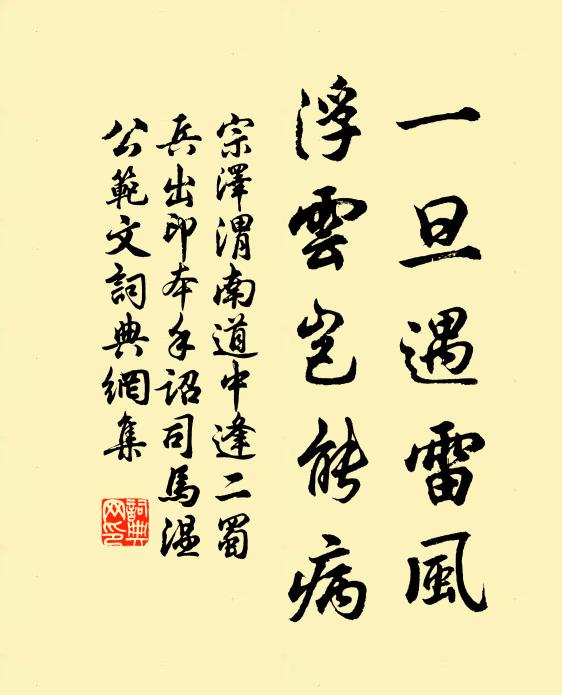 一旦遇雷風
浮雲豈能病
宗澤渭南道中逢二蜀
兵出印本手詔司馬溫
公範文詞典網集
詞典網印